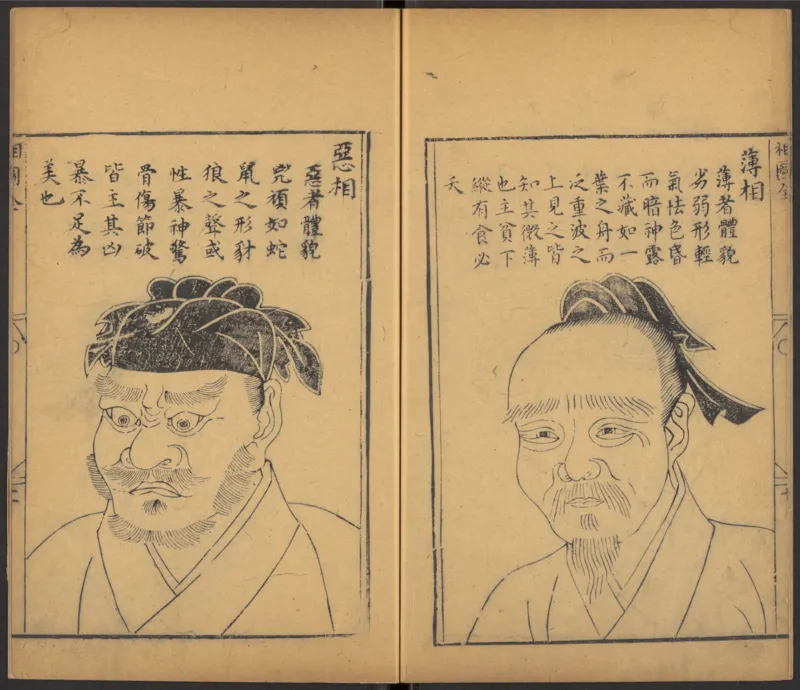 相圖全
薄相
薄者體貌
劣弱形輕
氣怯色昏
而暗神露
不藏如一
葉之舟而
泛重波之
上見之皆
知其微薄
也主貧下
縱有食必
夭
惡相
惡者體貌
兇頑如蛇
鼠之形豺
狼之聲或
性暴神驚
骨傷節破
皆主其凶
暴不足為
美也
相圖全